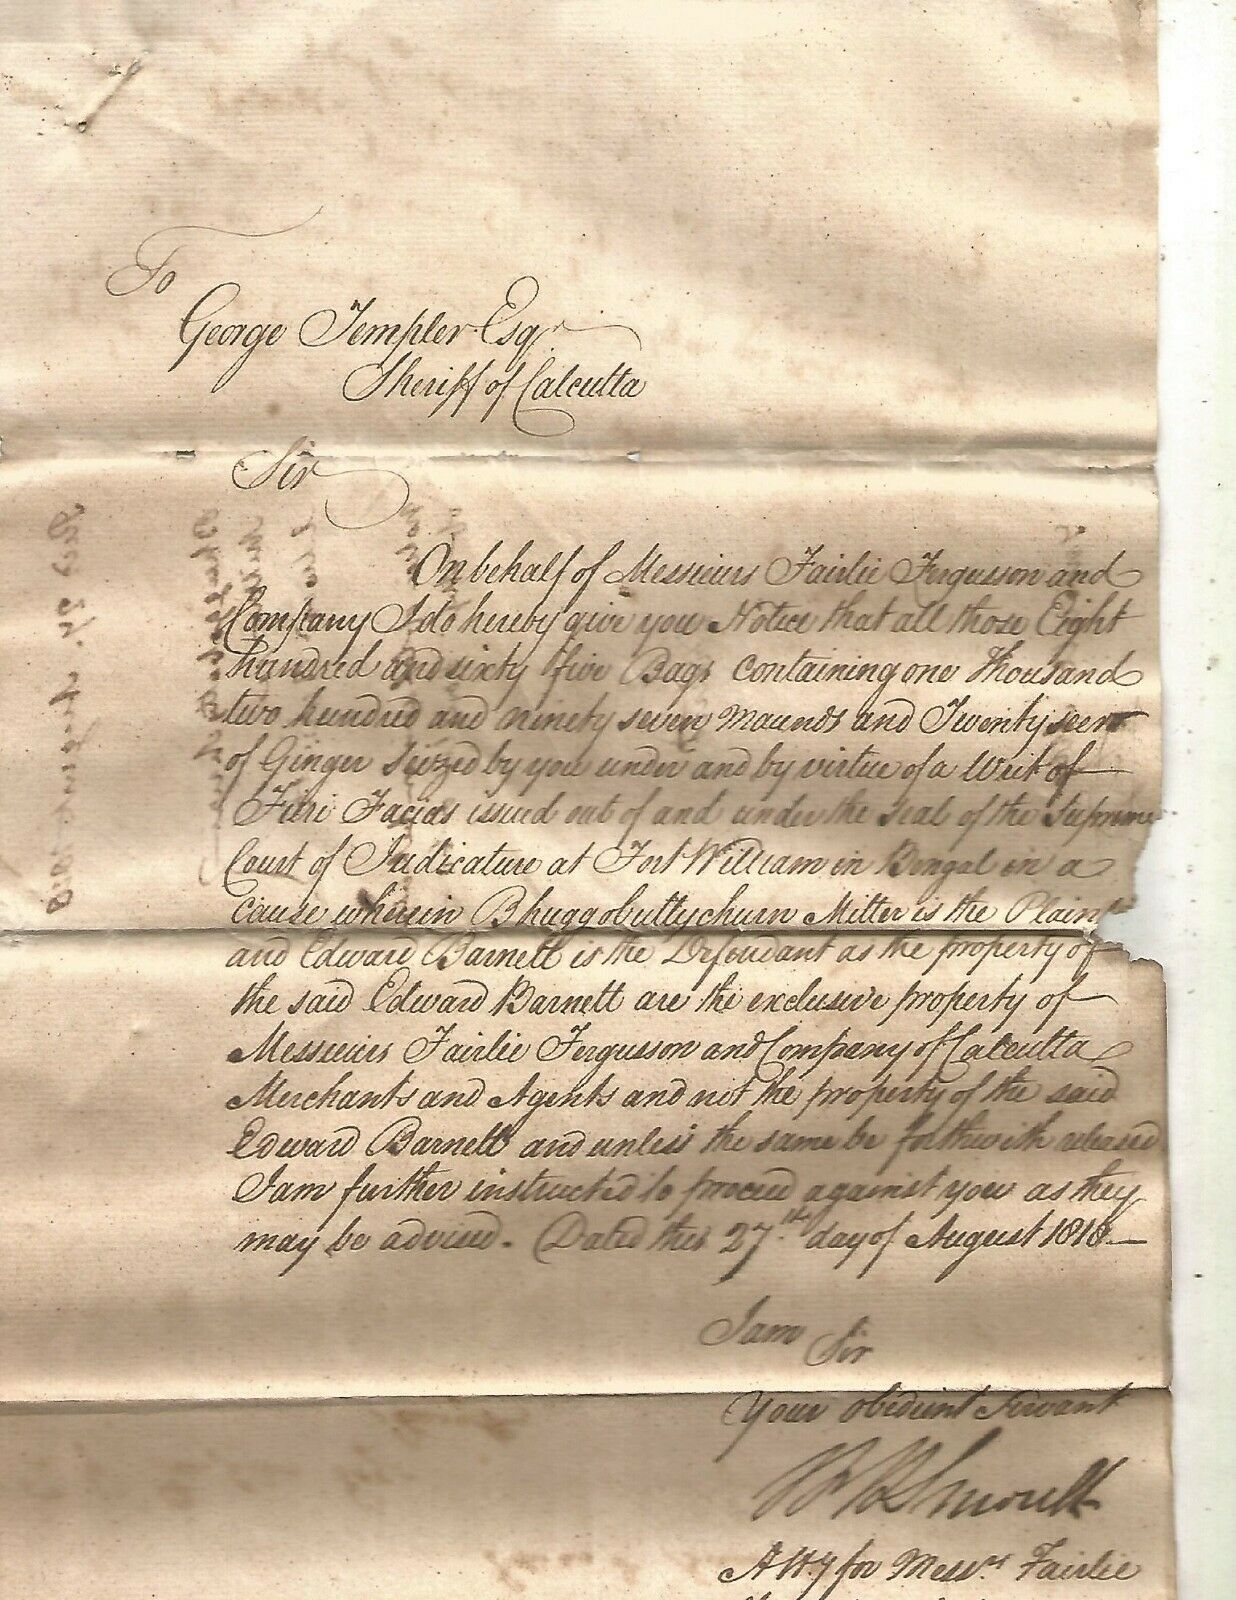 To
George Templer Esqr
Sheriff of Calcutta
Sir
On behalf of Messieurs Fairlie Fergusson and
Company I do hereby give you Notice that all those Eight
hundred and sixty five Bags containing one thousand
two hundred and ninety seven maunds and Twenty seers
of Ginger seized by you under and by virtue of a Writ of
Fieri Facias issued out of and under the seal of the Supreme
Court of Judicature at Fort William in Bengal in a
Cause wherein Bhuggobuttychurn Mitter is the Plain
and Edward Barnett is the Defendant as the property of
the said Edward Barnett are the exclusive property of
Messieurs Fairlie Fergusson and Company of Calcutta
Merchants and Agents and not the property of the said
Edward Barnett and unless the same be forthwith released
I am further instructed to proceed against you as they
may be advised. Dated this 27th day of August 1818
I am Sir
Your obedient Servant
Atty for Messrs Fairlie